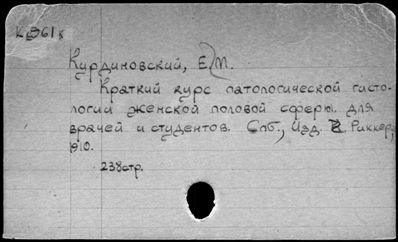 Курдиновский, Е. М.
Краткий курс патологической гисто-
логии женской половой сферы. Для
врачей и студентов. Спб., Изд. Риккер,
1910.
238стр.